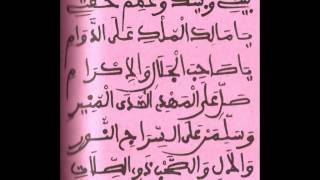 يا مالك الملك على الدوام
يا صاحب الجلال والإكرام
صل على المهدي الهدى المنير
وسلمن على السراج النور
والآل والصحب ذوي الصلات